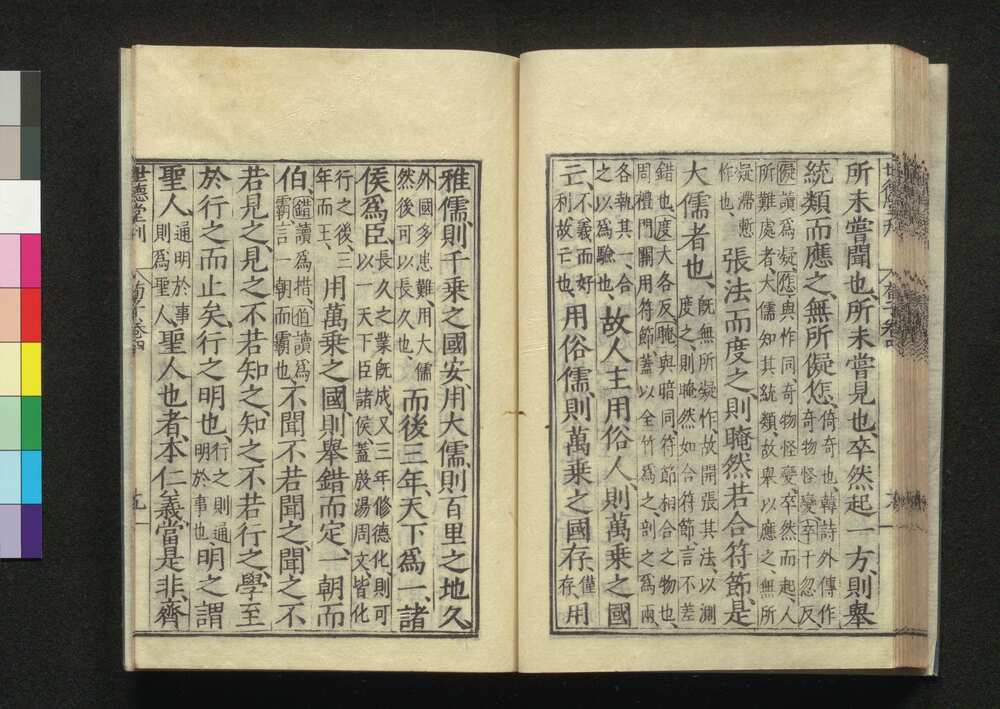 所未嘗聞也、所未嘗見也、卒然起一方、則舉
統類而應之、無所儗㤰、
倚奇也韓詩外傳作
奇物怪變卒千忽反、
儗讀爲疑、㤰與作同、奇物怪變、卒然而起、人
所難處者、大儒知其統類、故舉以應之、無所
疑滯慙
作也、
張法而度之、則晻然若合符節、是
大儒者也、
既無所疑作、故開張其法、以測
度之、則晻然如合符節、言不差
錯也、度大各反、晻與暗同、符節相合之物也、
周禮門關用符節、蓋以全竹爲之、剖之爲兩、
各執其一、合
之以爲驗也、
故人主用俗人、則萬乘之國
亡、
不義而好
利故亡也、
用俗儒、則萬乘之國存、
僅
存、
用
雅儒、則千乘之國安、用大儒、則百里之地久、
外國多患難、用大儒
然後可以長久也、
而後三年、天下爲一、諸
侯爲臣、
長久之業既成、又三年修德化、則可
以一天下臣諸侯、蓋殷湯周文、皆化
行之後、三
年而王、
用萬乘之國、則舉錯而定、一朝而
伯、
錯讀爲措、伯讀爲
霸、言一朝而霸也、
不聞不若聞之、聞之不
若見之、見之不若知之、知之不若行之、學至
於行之而止矣、行之明也、
行之則通
明於事也
明之謂
聖人、
通明於事
則爲聖人、
聖人也者、本仁義、當是非、齊
世德堂刊
荀子卷四
九